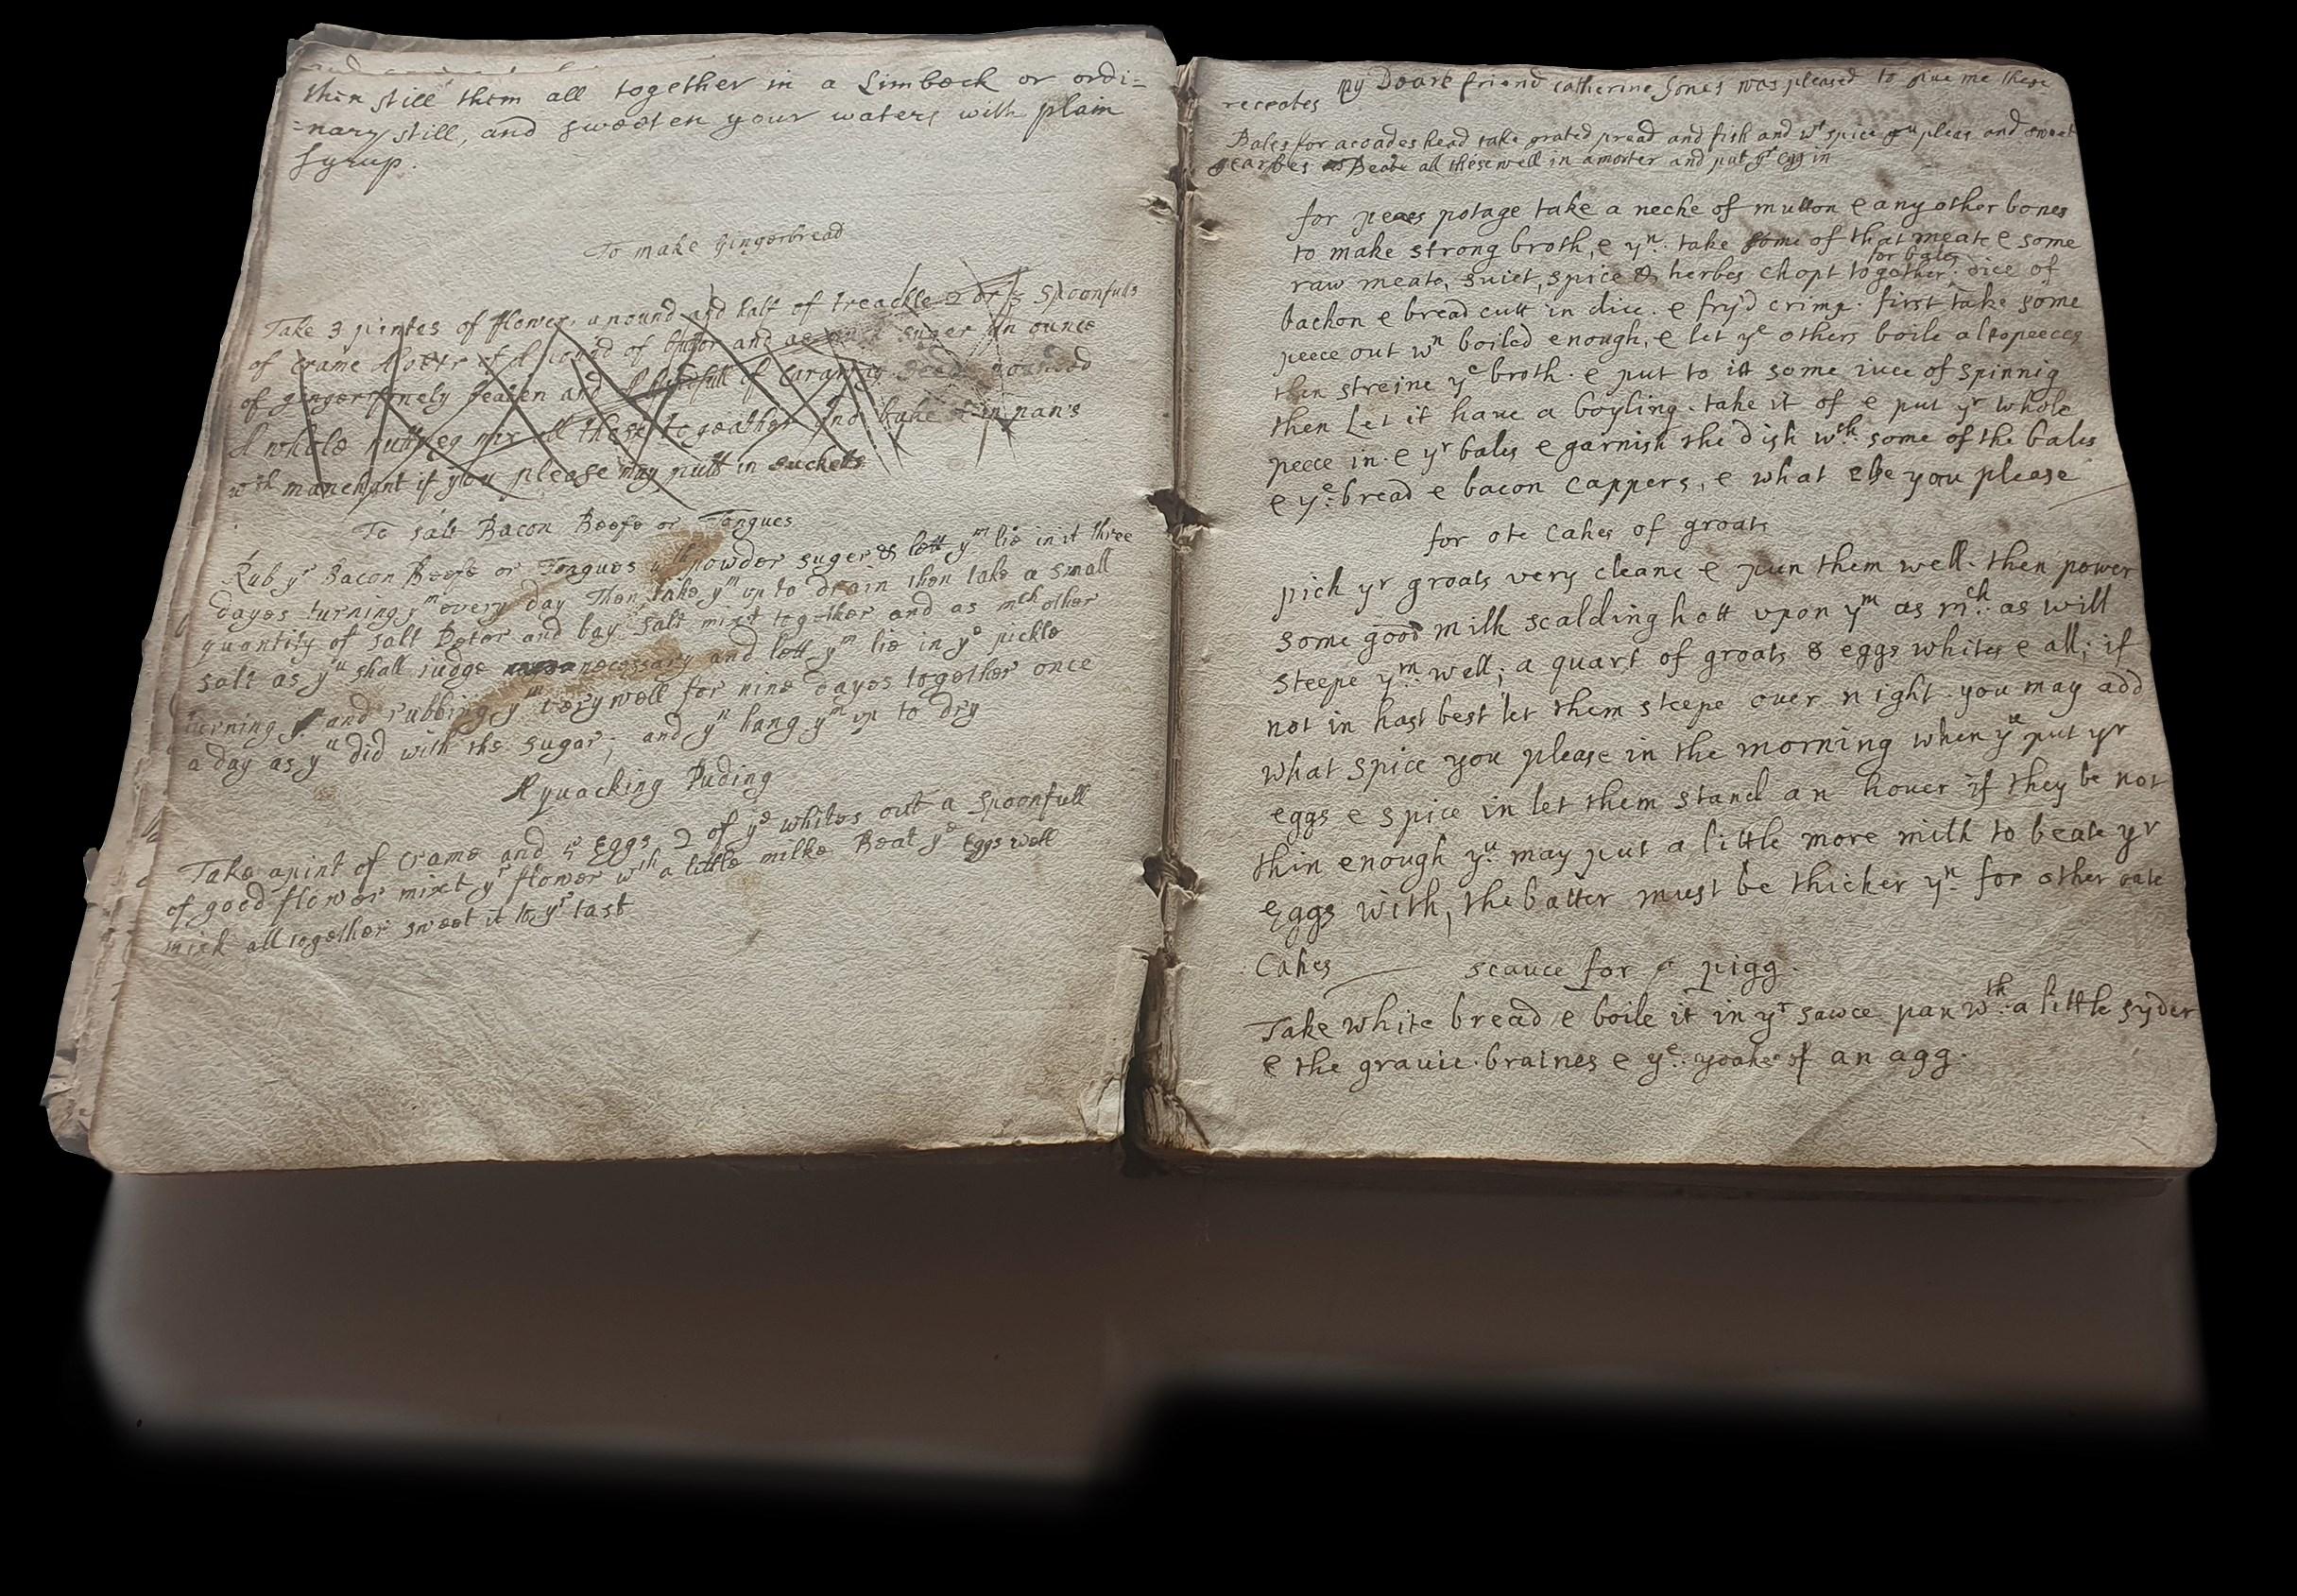 then still them all together in a Limbeck or ordi=
=nary still, and sweeten your waters with plain
syrup.
To make gingerbread
Take 3 pintes of flower, a pound and half of treackle 2 or 3 spoonfulls
of crame a pound of butter and suger an ounce
of ginger finely beaten and a handfull of Caraway seeds
A whole nuttmeg mix all these togeather and bake it in pan's
wth manchant if you please may putt in suckets
To salt Bacon Beefe or Tongues
Rub yr Bacon Beefe or Tongues wth powder suger & lett ym lie in it three
dayes turning ym every day Then take ym up to drain then take a small
quantity of salt Peter and bay salt mixt together and as mch other
salt as yu shall judge necessary and lett ym lie in ye pickle
turning and rubbing ym very well for nine dayes together once
a day as yu did with the sugar; and yn hang ym up to dry
A quacking Puding
Take a pint of Crame and 5 Eggs 2 of ye whites out a spoonfull
of good flower mixt yr flower wth a little milke Beat ye Eggs well
mixk all together sweet it to yr tast
My Deare friend catherine Jones was pleased to giue me these
receates
Bales for a coades head take grated pread and fish and wt spice yu pleas and sweet
earbes Beate all these well in a morter and put yr egg in
for peaes potage take a neche of mutton e any other bones
to make strong broth, e yn. take some of that meate e some
for bales
raw meate, suiet, spice & herbes chopt together, dice of
bachon e bread cutt in dice. e fry'd crimp. first take some
peece out wn boiled enough, e let ye others boile al to peeces
then streine ye broth. e put to itt some iuce of spinnig
then Let it haue a boyling. take it of e put yr whole
peece in. e yr bales e garnish the dish wth. some of the bales
e ye. bread e bacon Cappers, e what else you please
for ote Cakes of groats
pick yr groats very cleane e pun them well. then power
some good milk scalding hott upon ym as mch. as will
steepe ym. well; a quart of groats 8 eggs whites e all; if
not in hast best let them steepe over night. you may add
what spice you please in the morning when ye put yr
eggs e spice in let them stand an houer if they be not
thin enough yu. may put a little more milk to beate yr
eggs with, the batter must be thicker yn. for other oate
Cakes
scauce for a pigg.
Take white bread e boile it in yr sawce pan wth. a little syder
e the grauie. braines e ye. yoake of an agg.